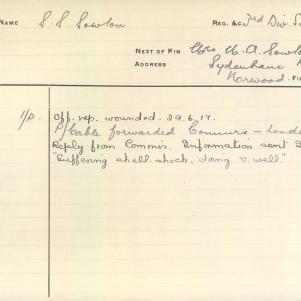 NAME S. S. Sowton REG. &C. 3rd Div. S
NEXT OF KIN Mrs M. A. Sowto
ADDRESS Sydenham
Norwood
1/p. Off. rep. wounded. 29.6.17.
P/Cable forwarded Commrs. - Lond
Reply from Commis. Information sent
"Suffering shell-shock, doing v. well."